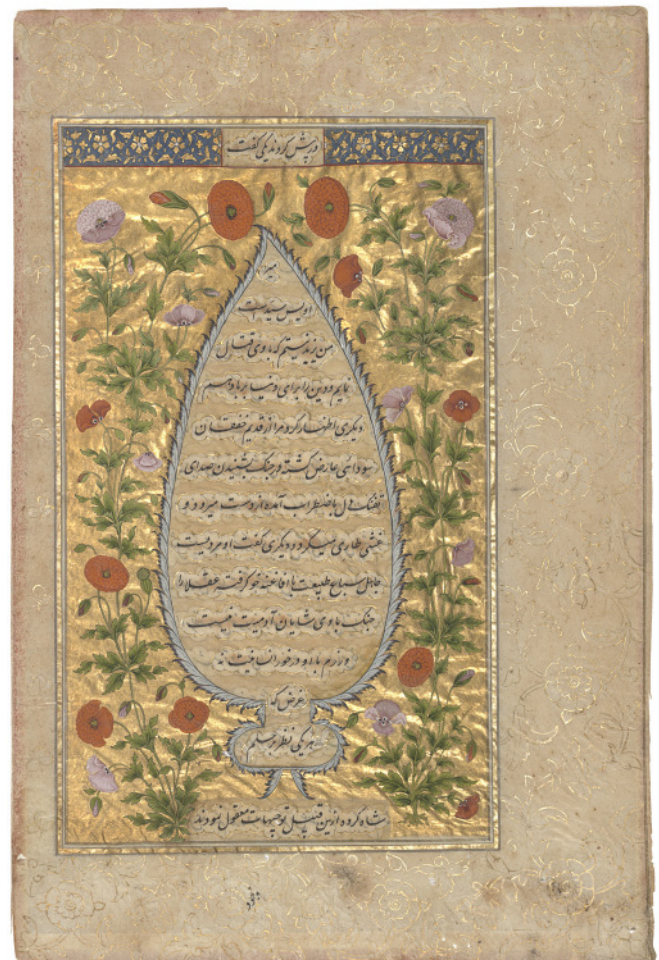 در پیش کردند یکی گفت
میرزا
اویس سیدست
من یزید نیستم که با وی قتال
نمایم و دین را برای دنیا بر باد دهم
دیگری اظهار کرد مرا از قدیم خفقان
سودائی عارض گشته در جنک بشنیدن صدای
تفنک دل باضطراب آمده از دست میرود و
غشی طاری میگردد دیگری گفت او مردیست
جاهل سباع طبیعت با افاغنه خو گرفته عقلا را
جنک با وی شایان آدمیت نیست
و رزم با او در خور انسانیت نه
غرض که
هر یکی نظر بر سلم
شاه کرده ازین قبیل توجیهات معقول نمودند